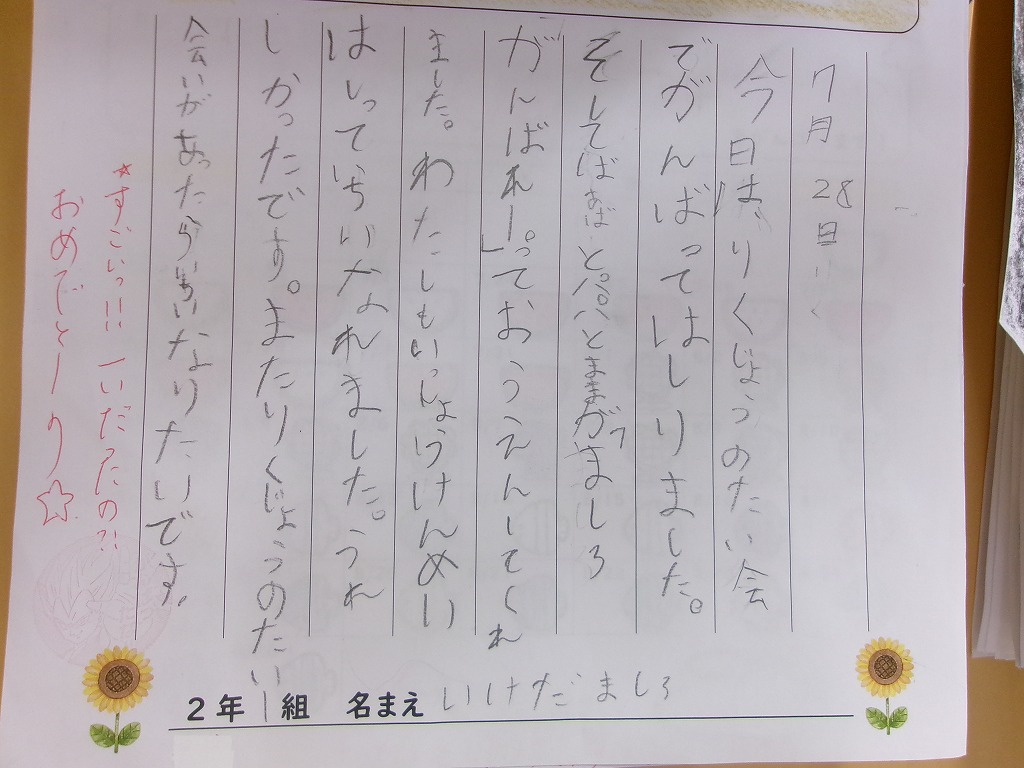 7月28日
今日は、りくじょうのたい会
でがんばってはしりました。
そしてばあばとパパとままが「ましろ
がんばれー。」っておうえんしてくれ
ました。わたしもいっしょけんめい
はしっていちいなれました。うれ
しかったです。またりくじょうのたい
会いがあったらいちいなりたいです。
★すごいっ!!一いだったの?!
おめでとーり☆
2年1組 名まえ いけだ ましろ